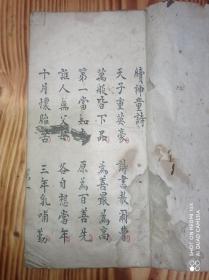 續神童詩
天子重英豪　詩書教爾曹
萬般皆下品　為善最為高
第一當知孝　原為百善先
誰人無父母　各自想當年
十月懷胎苦　三年乳哺勤